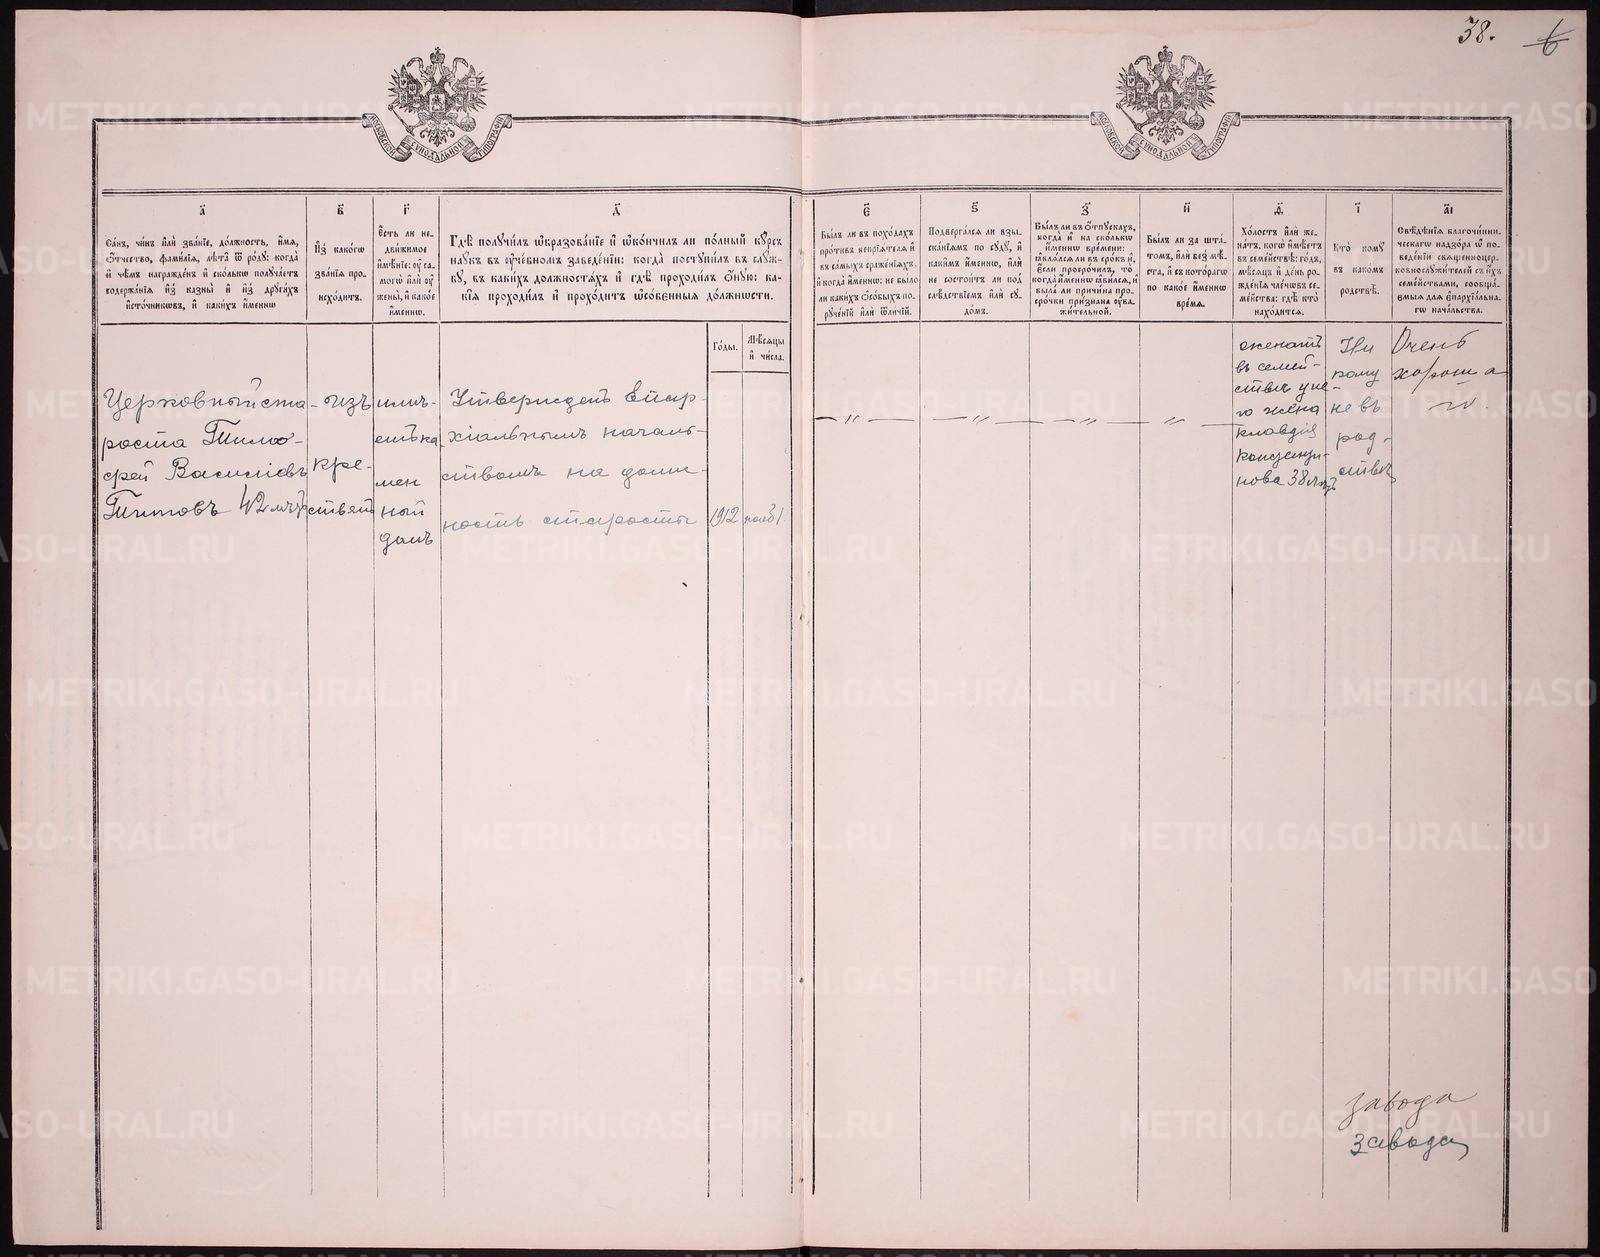 38. 6
МОСКОВСКОЙ СѴНОДАЛЬНОЙ ТИПОГРАФІИ
МОСКОВСКОЙ СѴНОДАЛЬНОЙ ТИПОГРАФІИ
а҃
Са́нъ, чи́нъ и҆лѝ зва́нїе, до́лжность, и҆́мѧ,
ѻ҆́тчество, фами́лїѧ, лѣ́та ѿ ро́дꙋ: когда̀
и҆ чѣ́мъ награжде́нъ и҆ ско́лькѡ полꙋча́етъ
содержа́нїѧ и҆з̾ казны̀ и҆ и҆з̾ дрꙋги́хъ
и҆сто́чникѡвъ, и҆ каки́хъ и҆́меннѡ
в҃
И҆з̾ како́гѡ
зва́нїѧ про-
исхо́дитъ.
г҃
Е҆́сть ли не-
дви́жимое
и҆мѣ́нїе: ᲂу҆ са-
могѡ̀ и҆лѝ ᲂу҆
жены̀, и҆ како́е
и҆́меннѡ.
д҃
Гдѣ̀ полꙋчи́лъ ѡ҆бразова́нїе и҆ ѡ҆ко́нчилъ ли по́лный кꙋ́рсъ
наꙋ́къ въ ᲂу҆че́бномъ заведе́нїи: когда̀ постꙋпи́лъ въ слꙋ́ж-
бꙋ, въ каки́хъ должностѧ́хъ и҆ гдѣ̀ проходи́лъ ѻ҆́нꙋю: ка-
кі́ѧ проходи́лъ и҆ прохо́дитъ ѡ҆со́бенныѧ до́лжности.
Го́ды.
Мѣ́сѧцы
и҆ чи́сла.
є҃
Бы́лъ ли въ похо́дахъ
про́тивъ непрїѧ́телѧ и҆
въ са́мыхъ сраже́нїѧхъ,
и҆ когда̀ и҆́меннѡ: не бы́ло
ли каки́хъ ѻ҆со́быхъ по-
рꙋче́нїй и҆лѝ ѿли́чїй.
ѕ҃
Подверга́лсѧ ли взы-
ска́нїѧмъ по сꙋдꙋ̀, и҆
каки́мъ и҆́меннѡ, и҆лѝ
не состои́тъ ли под̾
слѣ́дствїемъ и҆лѝ сꙋ-
до́мъ.
з҃
Бы́лъ ли въ ѻ҆́тпꙋскахъ,
когда̀ и҆ на ско́лькѡ
и҆́меннѡ вре́мени:
ꙗ҆влѧ́лсѧ ли въ сро́къ и҆,
є҆́сли просро́чилъ, то
когда̀ и҆́меннѡ ꙗ҆ви́лсѧ, и҆
была̀ ли причи́на про-
сро́чки при́знана ᲂу҆ва-
жи́тельной.
и҃
Бы́лъ ли за шта́-
томъ, и҆лѝ без̾ мѣ́-
ста, и҆ съ кото́рагѡ
по како́е и҆́меннѡ
вре́мѧ.
ѳ҃
Хо́лостъ и҆лѝ же-
на́тъ, кого̀ и҆мѣ́етъ
въ семе́йствѣ: го́дъ,
мѣ́сѧцъ и҆ де́нь ро-
жде́нїѧ чле́нѡвъ се-
ме́йства: гдѣ̀ кто̀
нахо́дитсѧ.
і҃
Кто̀ комꙋ̀
въ како́мъ
родствѣ̀.
а҃і
Свѣ́дѣнїѧ благочи́нни-
ческагѡ надзо́ра ѡ҆ по-
веде́нїи свѧщенноцер-
ковнослꙋжи́телей съ и҆́хъ
семе́йствами, сообща́-
ємыѧ длѧ є҆парха́льна-
гѡ нача́льства.
Церковный ста-
роста Тимо-
фей Василіевъ
Титовъ 42 лѣтъ
изъ
кре-
стьянъ
имѣ-
етъ ка
мен
ный
домъ
Утвержденъ Епар-
хіальнымъ началь-
ствомъ на долж-
ность старосты
1912 нояб 1
— „ —
— „ —
— „ —
— „ —
женатъ
въ семей-
ствѣ у не-
го жена
Клавдія
38 лѣтъ
Ни
кому
не въ
род-
ствѣ
Очень
хороша-
го.
завода
завода